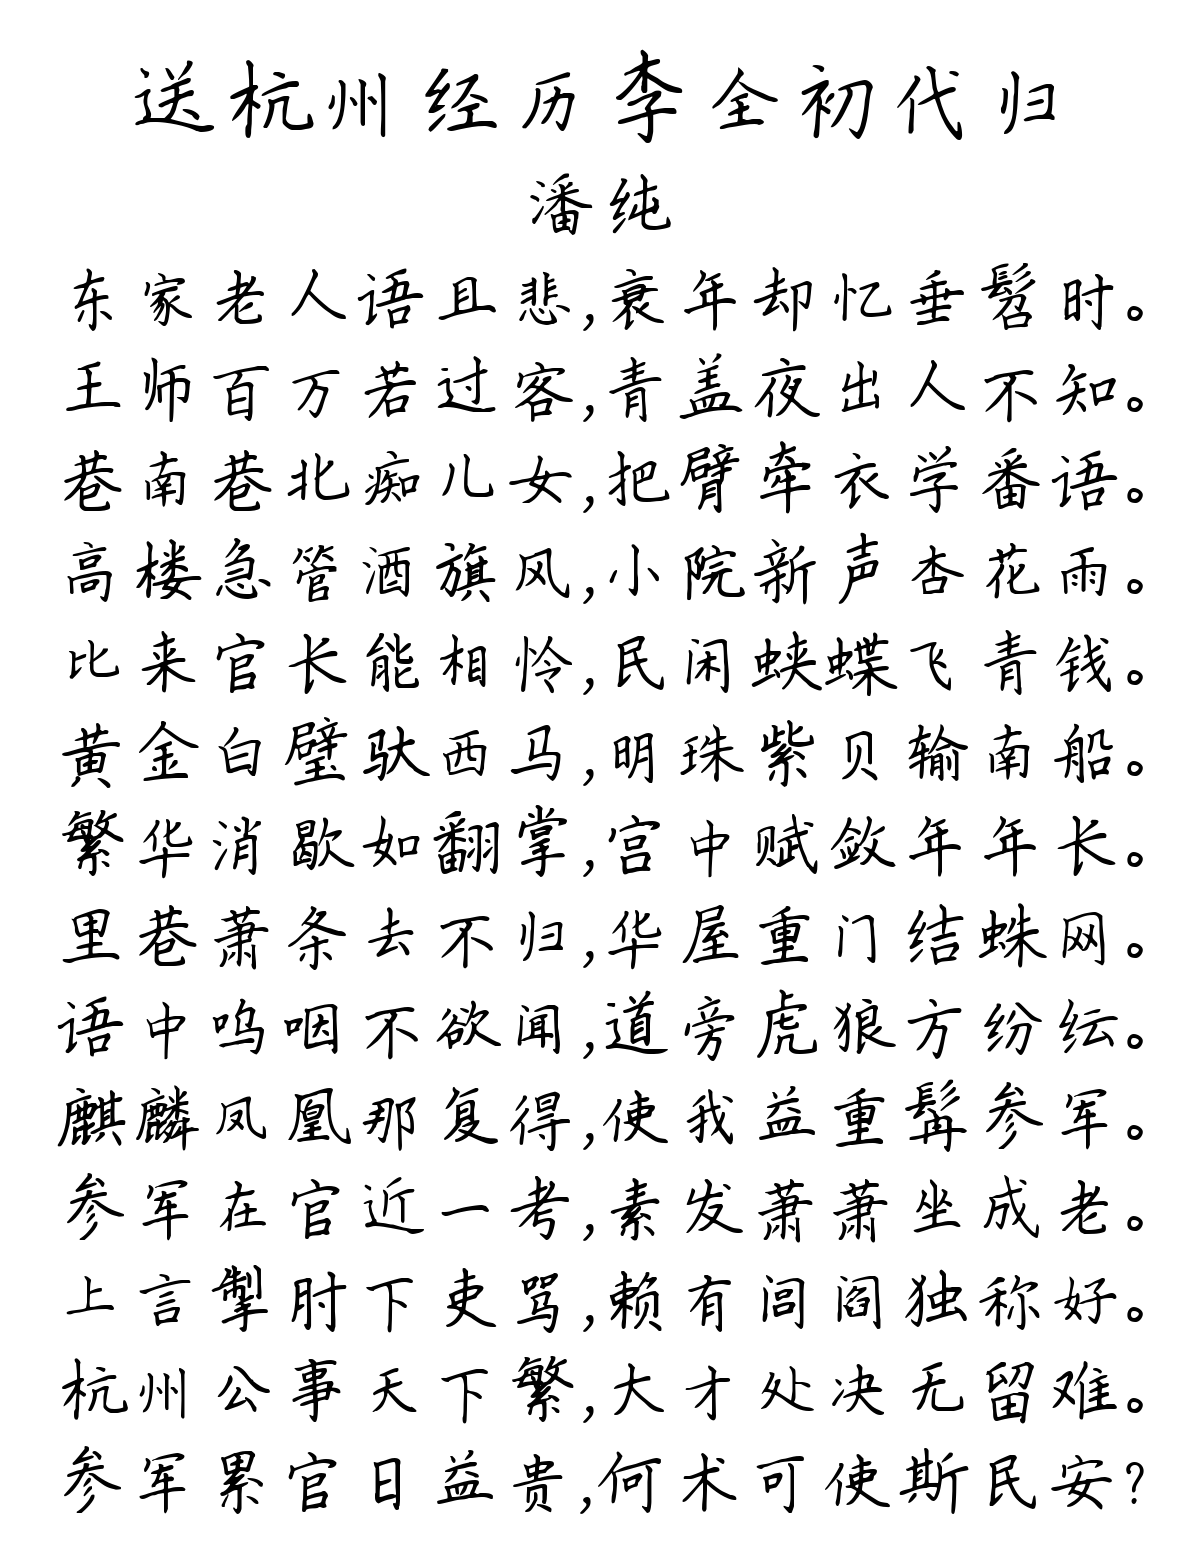 送杭州经历李全初代归
潘纯
东家老人语且悲,衰年却忆垂髫时。
王师百万若过客,青盖夜出人不知。
巷南巷北痴儿女,把臂牵衣学番语。
高楼急管酒旗风,小院新声杏花雨。
比来官长能相怜,民闲蛱蝶飞青钱。
黄金白璧驮西马,明珠紫贝输南船。
繁华消歇如翻掌,宫中赋敛年年长。
里巷萧条去不归,华屋重门结蛛网。
语中呜咽不欲闻,道旁虎狼方纷纭。
麒麟凤凰那复得,使我益重髯参军。
参军在官近一考,素发萧萧坐成老。
上言掣肘下吏骂,赖有闾阎独称好。
杭州公事天下繁,大才处决无留难。
参军累官日益贵,何术可使斯民安?